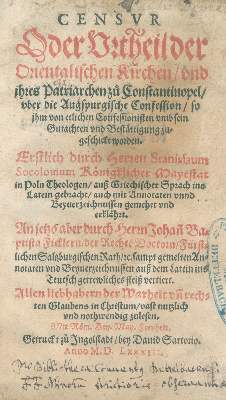 CENSVR
Oder Vrtheil der
Orientalischen Kirchen/ vnd
ihres Patriarchen zů Constantinopel/
vber die Augspurgische Confession/ so
ihm von etlichen Confessionisten vmb sein
Gutachten vnd Bestättigung zů-
geschickt worden.
Erstlich durch Herren Stanislaum
Socolouium Königklicher Mayestat
in Poln Theologen/ auß Griechischer Sprach ins
Latein gebracht/ auch mit Annotaten vnnd
Beyuerzeichnussen gemehrt vnd
erklährt.
An jetzt aber durch Herrn Johañ Ba-
ptista Ficklern der Recht Doctorn/ Fürst-
lichen Saltzburgischen Rath/ rc. sampt gemelten An-
notaten vnd Beyuerzeichnussen auß dem Latein ins
Teutsch getrewliches fleiß vertiert.
Allen liebhabern der Warheit vñ rech-
ten Glaubens in Christum/ vast nutzlich
vnd nothwendig zulesen.
Mit Röm. Key. May. Freyheit.
Getruckt zů Ingolstadt/ bey Dauid Sartorio.
Anno M. D. LXXXIII.
Bibliotheca